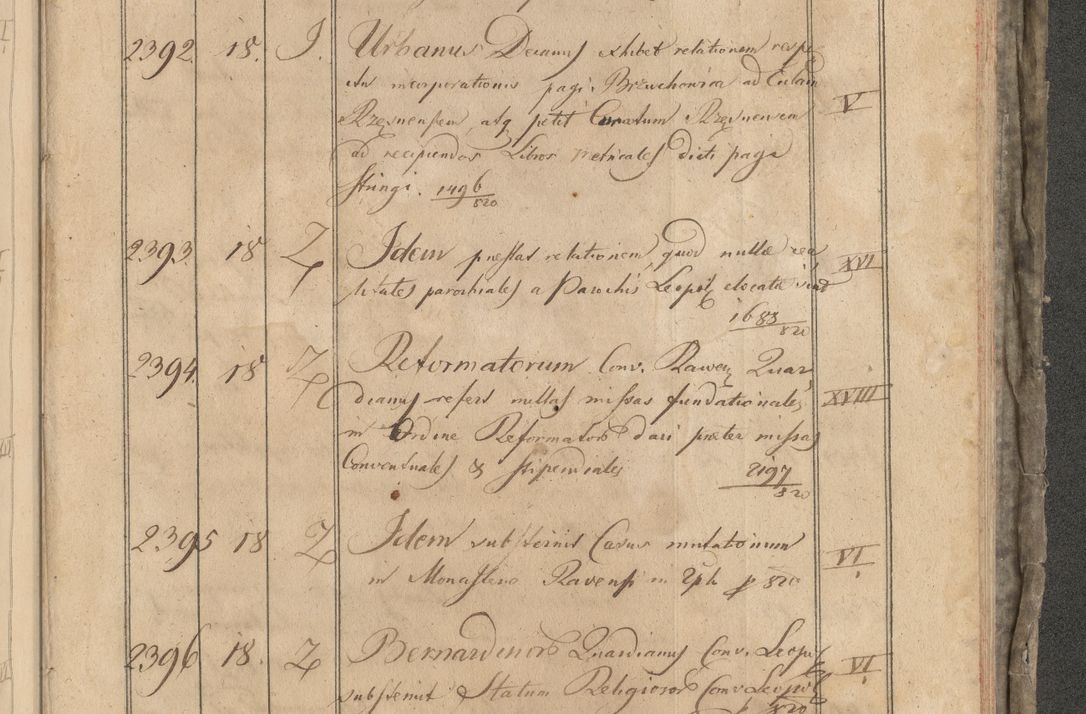 2392. 18. J. Urbanus Decanus exhibet relationem resp.
incorporationis pagi Brzuchowica ad
Rzęsnensem, atq petit Curatum Rzęsnensem
ad recipiendos Libros metricales dicti pagi
stringi. 1496/820
V
2393. 18 Z Idem praestas relationem, quod nullae rea
litates parochiales a Parochis Leopol elocatae sint
XVI
1683/820
2394. 18 Z Reformatorum Conv. Rawen Quar
dianus refert nullas missas fundationales
XVIII
in Ordine Reformator dari praeter missas
Conventuales & stipendiales 2197/820
2395 18 Z Idem substernit Casus mutationum
in Monasterio Ravensi in p 820
VI
2396 18. Z Bernardinor Quardianus Conv. Leopol
VI
substernit Statum Religiosor Conv Leopol
820